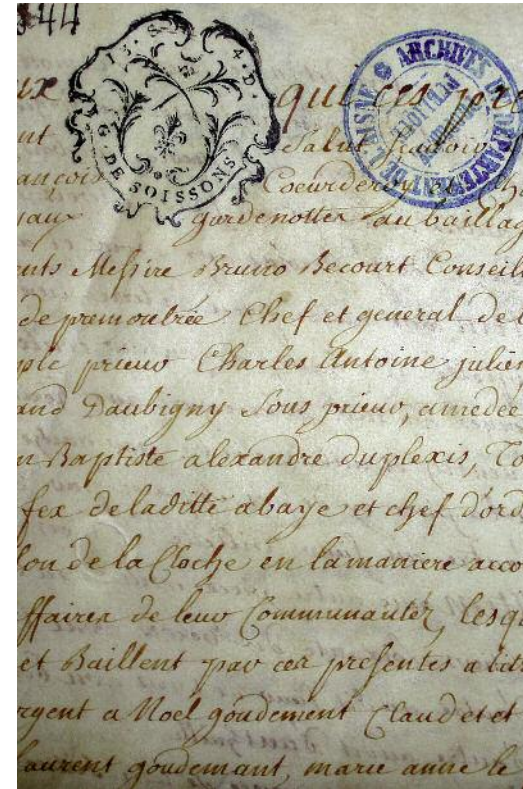 344
13. S. 4. D.
G. DE SOISSONS
ARCHIVES DU DÉPARTEMENT DE L'AISNE
ux qui ces pre
nt Salut
ançois Coeurderoy
saux gardenottes au baillag
ents Messire Bruno Becourt Conseil
de premontrée Chef et general de l
ple prieur Charles Antoine julien
and Daubigny Sous prieur, amedée
n Baptiste alexandre duplexis, To
fex deladitte abaye et chef d'ord
son de la Cloche en lamaniere acco
ffaires de leur Communautez, lesqu
et Baillent par ces presentes a tit
rgent a Noel goudement Claud et et
Laurent goudemant, marie anne le